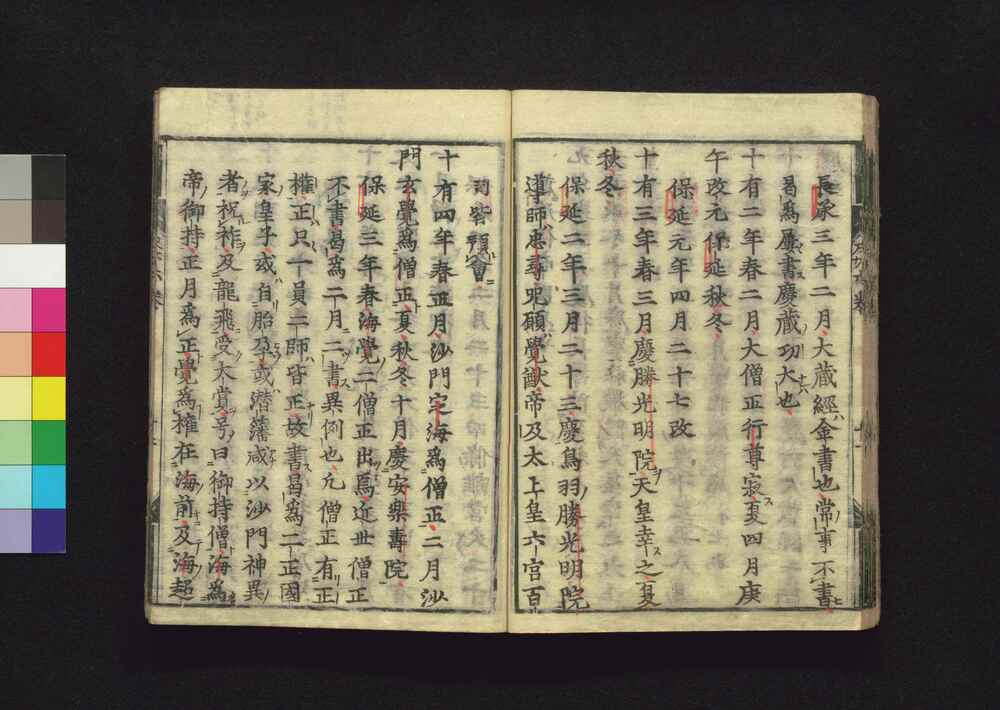 長承三年二月大蔵經金書也常事不書
曷爲屢書慶蔵功大也
十有二年春二月大僧正行尊寂夏四月庚
午改元保延秋冬
保延元年四月二十七改
十有三年春三月慶勝光明院天皇幸之夏
秋冬
保延二年三月二十三慶鳥羽勝光明院
導師忠尋呪願覺猷帝及太上皇六宮百
司皆預會
十有四年春正月沙門定海爲僧正二月沙
門玄覺爲僧正夏秋冬十月慶安樂壽院
保延三年春海覺二僧正出焉近世僧正
不書曷爲二月二書異例也凢僧正有正
權正只一員二師皆正故書曷爲二正國
家皇子或自胎孕或潜藩咸以沙門神異
者祝祚及龍飛受大賞号曰御持僧海爲
帝御持正月爲正覺爲權在海前及海超